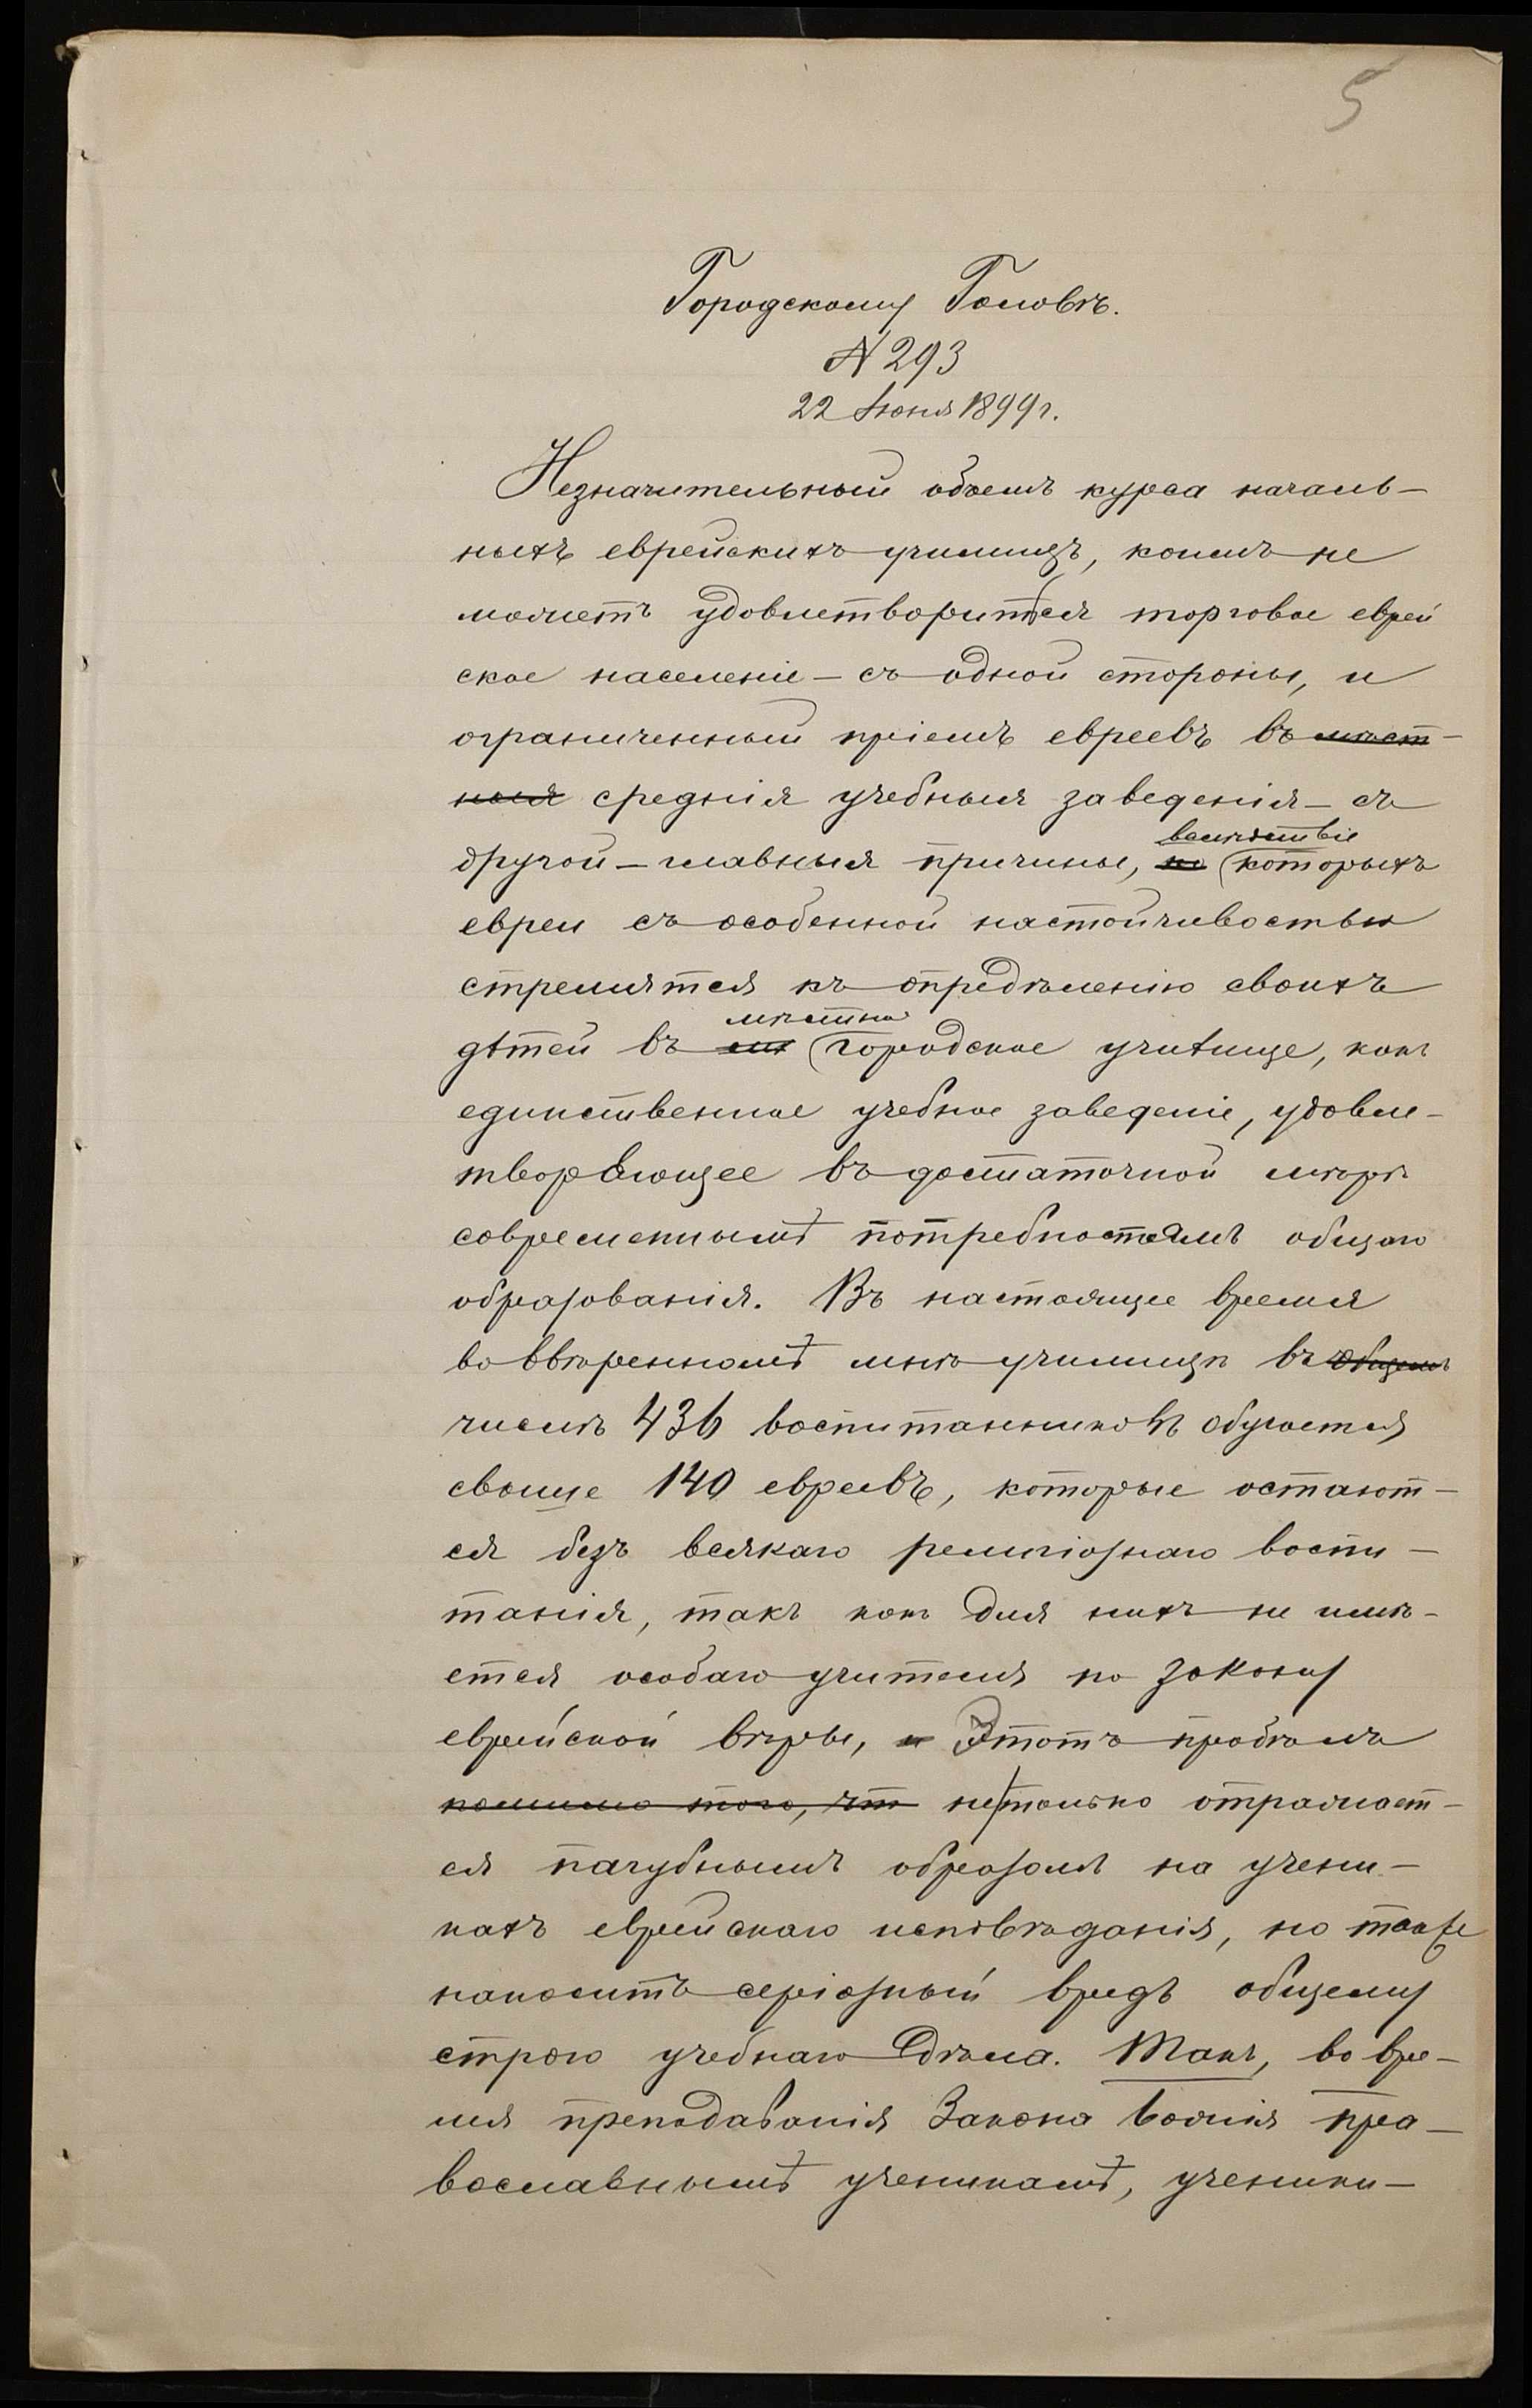 5
Городскому Головѣ.
№ 293
22 Июня 1899 г.
Незначительный объемъ курса началь-
ныхъ еврейскихъ училищъ, коимъ не
можетъ удовлетвориться торговое еврей
ское населеніе – съ одной стороны, и
ограниченный пріемъ евреевъ въ мѣст-
ныя среднія учебныя заведенія – съ
вслѣдствіе
другой – главныя причины, по которыхъ
евреи съ особенной настойчивостью
стремятся къ опредѣленію своихъ
мѣстное
дѣтей въ городское училище, какъ
единственное учебное заведеніе, удовле-
творяющее въ достаточной мѣрѣ
современнымъ потребностямъ общаго
образованія. Въ настоящее время
во ввѣренномъ мнѣ училищѣ въ общемъ
числѣ 436 воспитанниковъ обучается
свыше 140 евреевъ, которые остают-
ся безъ всякаго религіознаго воспи-
танія, такъ какъ для нихъ не имѣ-
ется особаго учителя по закону
еврейской вѣры, и Этотъ пробѣлъ
помимо того, что не только отражает-
ся пагубнымъ образомъ на учени-
кахъ еврейскаго исповѣданія, но также
наноситъ серіозный вредъ общему
строю учебнаго дѣла. Такъ, во вре-
мя преподаванія Закона Божія пра-
вославнымъ ученикамъ, ученики-